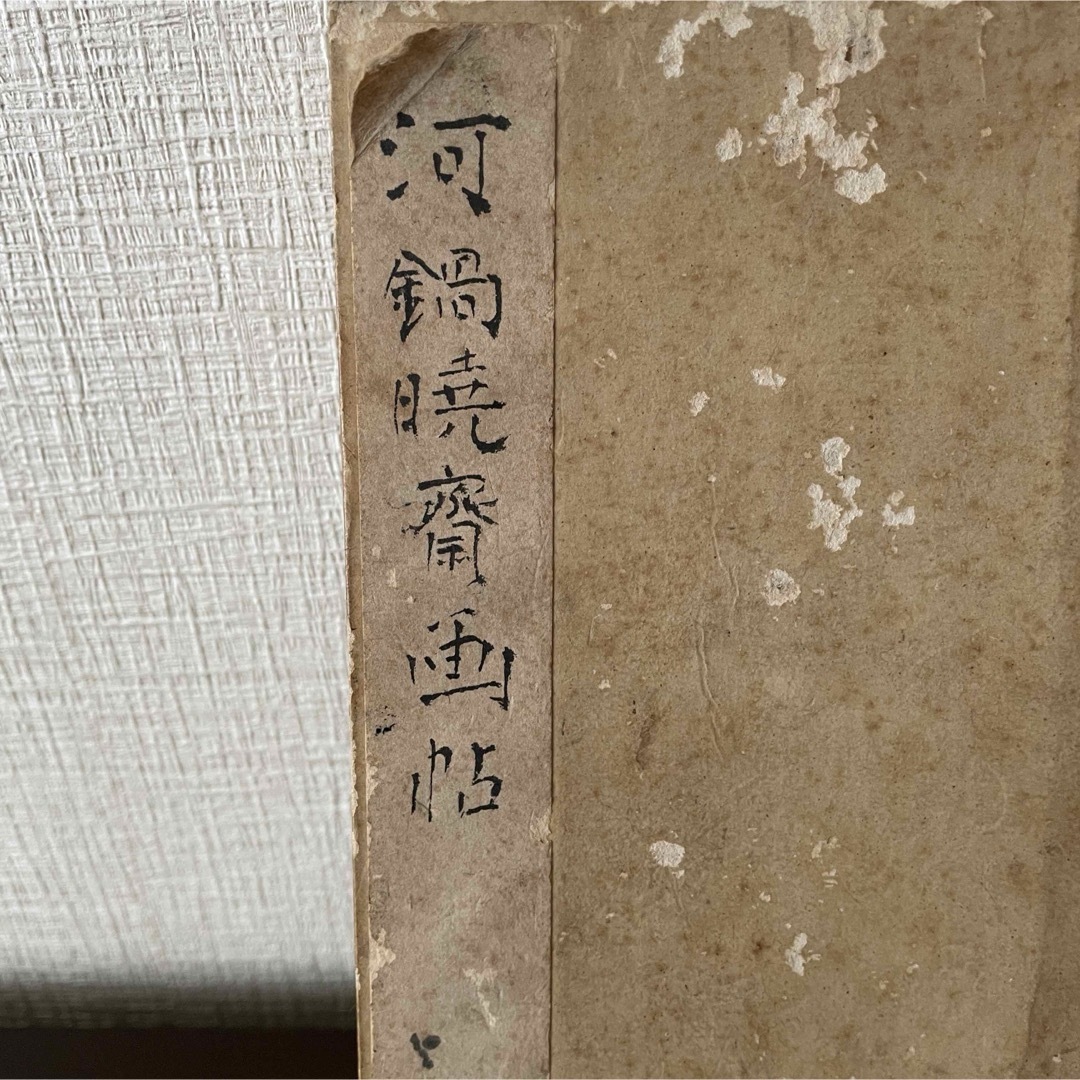 河鍋曉齋画帖